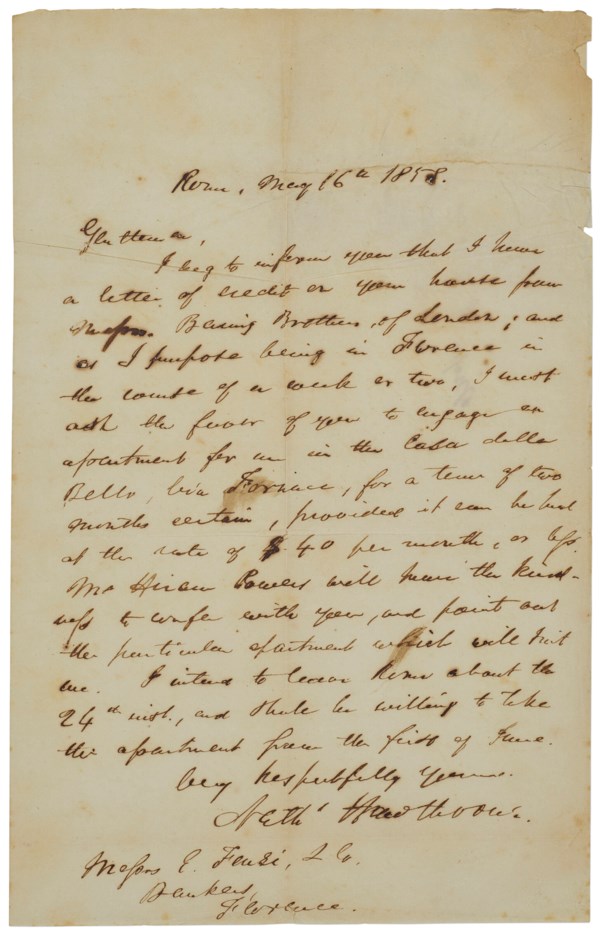 Rome, May 16th 1858.
Gentlemen,
I beg to inform you that I have
a letter of credit on your house from
Messrs. Baring Brothers, of London; and
as I purpose being in Florence in
the course of a week or two, I must
ask the favor of you to engage an
apartment for me in the Casa della
Bello, via Fornace, for a term of two
months certain, provided it can be had
at the rate of $40 per month, or less.
Mr Hiram Powers will have the kind-
ness to confer with you, and point out
the particular apartment which will suit
me. I intend to leave Rome about the
24th inst., and shall be willing to take
the apartment from the first of June.
Very respectfully Yours.
Nathl Hawthorne.
Messrs E. Fenzi, & Co.
Bankers,
Florence.